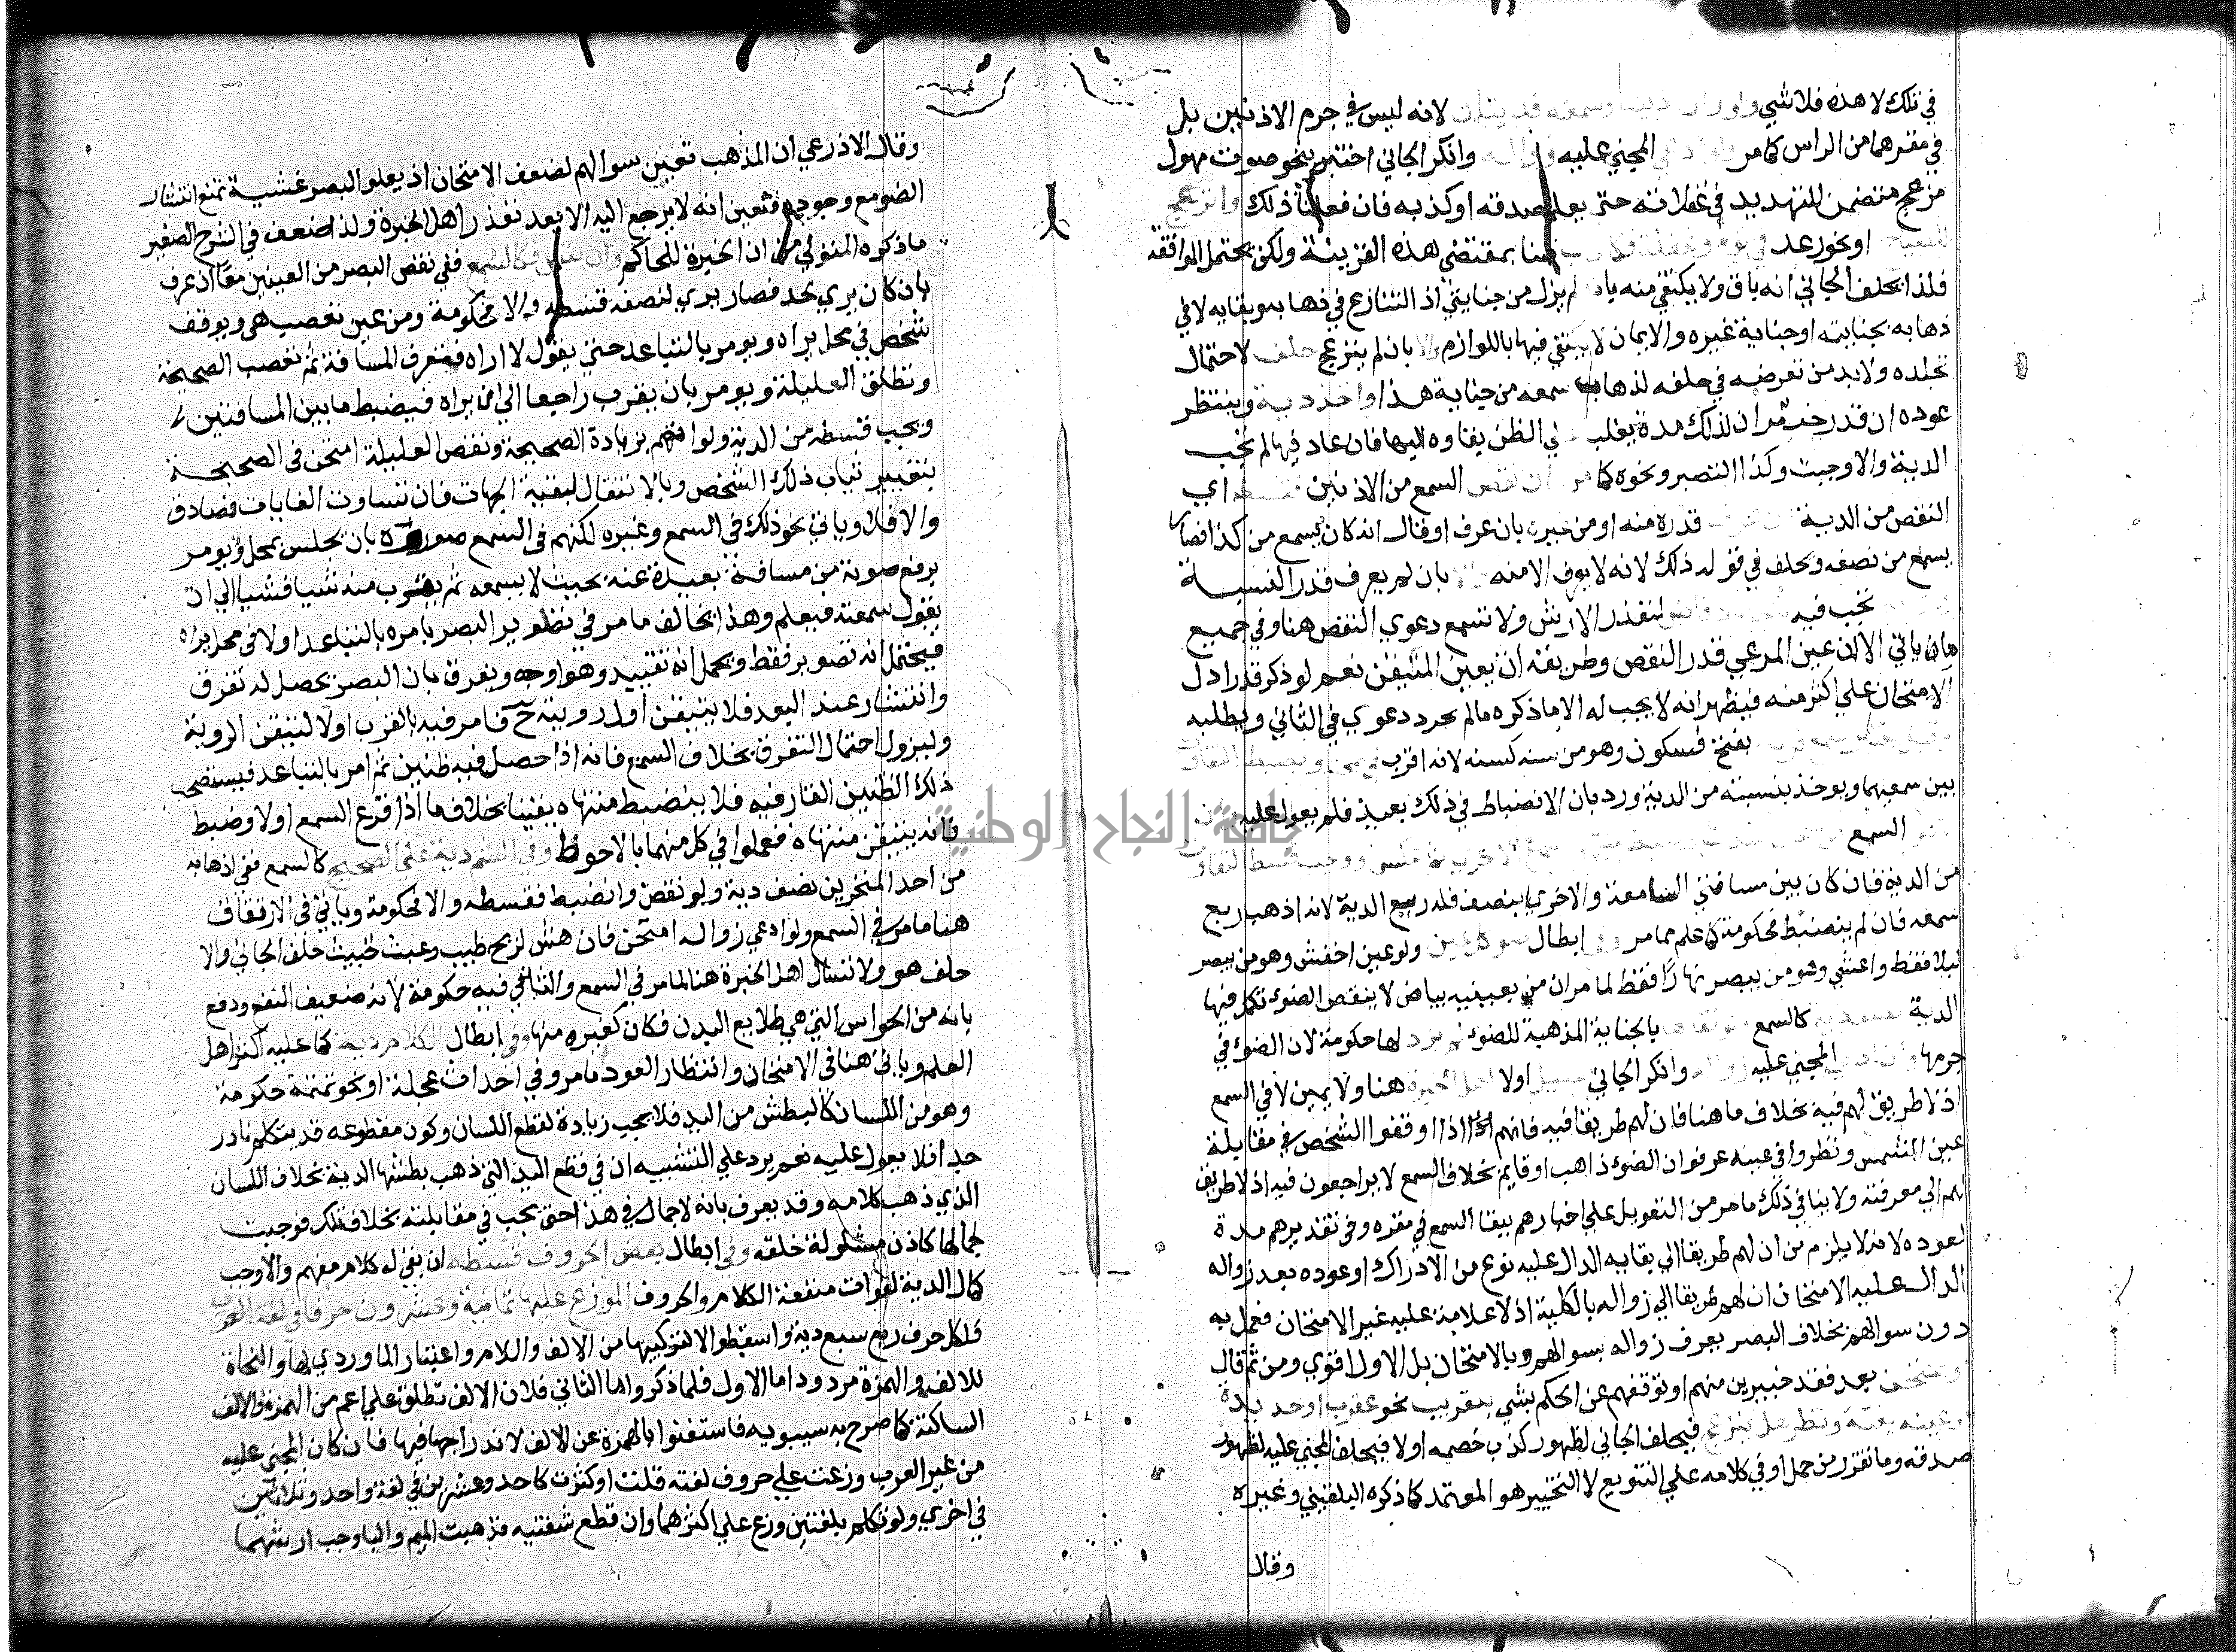 في تلك لا هذه فلا شي لانه ليس في جرم الاذنين بل
في مقرهما من الراس كما مر المجني عليه وانكر الجاني اختبر بنحو صوت مهول
مزعج متضمن للتهديد في غفلاته حتى يعلم صدقه او كذبه فان فعلنا ذلك وانزعج
او نحو رعد هنا بمقتضى هذه القرينة ولكن يحتمل الموافقة
فلذا يحلف الجاني انه باق ولا يكتفي منه بانه لم يزل من جنايتي اذ التنازع في ذهابه وبقايه لا في
ذهابه بجنايته او جناية غيره والايمان لا يكتفي فيها باللوازم والا بان لم ينزعج حلف لاحتمال
تجلده ولا بد من تعرضه في حلفه لذهاب سمعه من جناية هذا واخذ دية وينتظر
عوده ان قدر خبيران لذلك مدة يغلب على الظن بقاوه اليها فان عاد فيها لم تجب
الدية والا وجبت وكذا البصر ونحوه كما مر وان نقص السمع من الاذنين فقسطه اي
النقص من الدية ان عرف قدره منه او من غيره بان عرف او قال انه كان يسمع من كذا فصار
يسمع من نصفه وحلف في قوله ذلك لانه لا يعرف الا منه والا بان لم يعرف قدر النسبة
تجب فيه لتعذر الارش ولا تسمع دعوى النقص هنا وفي جميع
ما ياتي الا ان عين المدعي قدر النقص وطريقه ان يعين المتيقن نعم لو ذكر قدرا دل
الامتحان على اكثر منه فيظهر انه لا يجب له الا ما ذكره ما لم يجدد دعوى في الثاني ويطلبه
بفتح فسكون وهو من سنه كسنه لانه اقرب
بين سمعيهما ويوخذ بنسبته من الدية ورد بان الانضباط في ذلك بعيد فلم يعول عليه
السمع
من الدية فان كان بين مسافتي السامعة والاخرى النصف فله ربع الدية لانه اذهب ربع
سمعه فان لم ينضبط فحكومة كما علم مما مر وفي ابطال ضوء كل عين ولو عين اخفش وهو من يبصر
ليلا فقط واعشي وهو من يبصر نهارا فقط لما مر ان من بعينيه بياض لا ينقص الضوء تكمل فيها
الدية كالسمع بالجناية المذهبة للضوء لم يزد لها حكومة لان الضوء في
جرمها وان ادعى المجني عليه زواله وانكر الجاني سئل اولا اهل الخبرة هنا ولا يمين لا في السمع
اذ لا طريق لهم فيه بخلاف ما هنا فان لهم طريقا فيه فانهم اذا اوقفوا الشخص في مقابلة
عين الشمس ونظروا في عينه عرفوا ان الضوء ذاهب او قايم بخلاف السمع لا يراجعون فيه اذ لا طريق
لهم الى معرفته ولا ينافي ذلك ما مر من التعويل على اخبارهم ببقا السمع في مقره وفي تقديرهم مدة
لعوده لانه لا يلزم من ان لهم طريقا الى بقايه الدال عليه نوع من الادراك او عوده بعد زواله
الدال عليه الامتحان ان لهم طريقا الى زواله بالكلية اذ لا علامة عليه غير الامتحان فعمل به
دون سوالهم بخلاف البصر يعرف زواله بسوالهم وبالامتحان بل الاول اقوى ومن ثم قال
او يمتحن بعد فقد خبيرين منهم او توقفهم عن الحكم بشي بتقريب نحو عقرب او حديدة
او عينه بغتة ونظر هل ينزعج فيحلف الجاني لظهور كذب خصمه اولا فيحلف المجني عليه لظهور
صدقه وما تقرر من حمل او في كلامه على التنويع لا التخيير هو المعتمد كما ذكره البلقيني وغيره
وقال
وقال الاذرعي ان المذهب تعين سوالهم لضعف الامتحان اذ يعلو البصر غشية تمنع انتشار
الضو مع وجوده فتعين انه لا يرجع اليه الا بعد تعذر اهل الخبرة ولذا ضعف في الشرح الصغير
ما ذكره المتولي من ان الخيرة للحاكم وان نقص فكالسمع ففي نقص البصر من العينين معا ان عرف
بان كان يري لحد فصار يري لنصفه قسطه والا فحكومة ومن عين تعصب هي ويوقف
شخص في محل يراه ويومر بالتباعد حتى يقول لا اراه فتعرف المسافة ثم تعصب الصحيحة
وتطلق العليلة ويومر بان يقرب راجعا الى ان يراه فيضبط ما بين المسافتين
ويجب قسطه من الدية ولو اتهم بزيادة الصحيحة ونقص العليلة امتحن في الصحيحة
بتغيير ثياب ذلك الشخص وبالانتقال لبقية الجهات فان تساوت الغايات فصادق
والا فلا وياتي نحو ذلك في السمع وغيره لكنهم في السمع صوروه بان يجلس بمحل ويومر
برفع صوته من مسافة بعيدة عنه بحيث لا يسمعه ثم يقرب منه شيا فشيا الى ان
يقول سمعته فيعلم وهذا يخالف ما مر في تصوير البصر بامره بالتباعد اولا في محل يراه
فيحتمل انه تصوير فقط ويحتمل انه تقييد وهو اوجه ويفرق بان البصر يحصل له تفرق
وانتشار عند البعد فلا يتيقن اول رويته ح فامر فيه بالقرب اولا لتيقن الروية
وليزول احتمال التفرق بخلاف السمع فانه اذا حصل فيه طنين ثم امر بالتباعد فيستصحب
ذلك الطنين القار فيه فلا ينضبط منتهاه يقينا بخلاف ما اذا قرع السمع اولا وضبط
فانه يتيقن منتهاه فعملوا في كل منهما بالاحوط وفي الشم دية على الصحيح كالسمع ففي اذهابه
من احد المنخرين نصف دية ولو نقص وانضبط فقسطه والا فحكومة وياتي في الارتفاق
هنا ما مر في السمع ولو ادعي زواله امتحن فان هش لريح طيب وعبث خبيث حلف الجاني والا
حلف هو ولا تسال اهل الخبرة هنا لما مر في السمع والثاني فيه حكومة لانه ضعيف النفع ودفع
بانه من الحواس التي هي طلايع البدن فكان كغيره منها وفي ابطال الكلام دية كما عليه اكثر اهل
العلم وياتي هنا في الامتحان وانتظار العود ما مر وفي احداث عجلة او نحو تمتمة حكومة
وهو من اللسان كالبطش من اليد فلا يجب زيادة لقطع اللسان وكون مقطوعه قد يتكلم نادر
جدا فلا يعول عليه نعم يرد على التشبيه ان في قطع اليد التي ذهب بطشها الدية بخلاف اللسان
الذي ذهب كلامه وقد يعرف بانه لا جمال في هذا حتى يجب في مقابلته بخلاف تلك فوجبت
لجمالها كاذن مشلولة خلقه وفي ابطال بعض الحروف قسطه ان بقي له كلام مفهم والا وجب
كمال الدية لفوات منفعة الكلام والحروف الموزع عليها ثمانية وعشرون حرفا في لغة العرب
فلكل حرف ربع سبع دية واسقطوا لا لتركيبها من الالف واللام واعتبار الماوردي لها والنحاة
للالف والهمزة مردود اما الاول فلما ذكر واما الثاني فلان الالف تطلق على اعم من الهمزة والالف
الساكنة كما صرح به سيبويه فاستغنوا بالهمزة عن الالف لاندراجها فيها فان كان المجني عليه
من غير العرب وزعت على حروف لغته قلت او كثرت كاحد وعشرين في لغة واحد وثلاثين
في اخري ولو تكلم بلغتين وزع على اكثرهما وان قطع شفتيه فذهبت الميم والبا وجب ارشهما
جامعة النجاح الوطنية